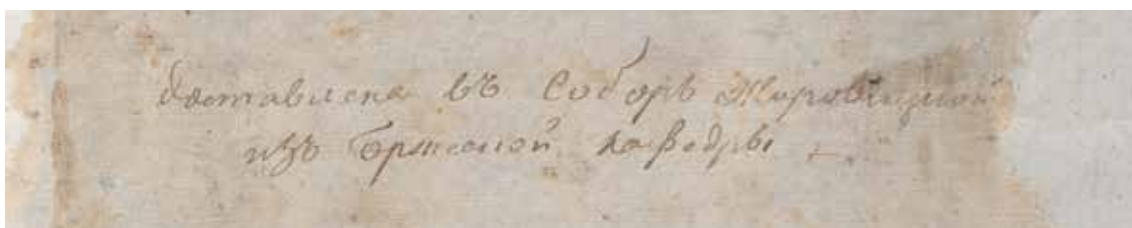 доставлена въ Соборъ Жировицкой
изъ Брестской кафедры